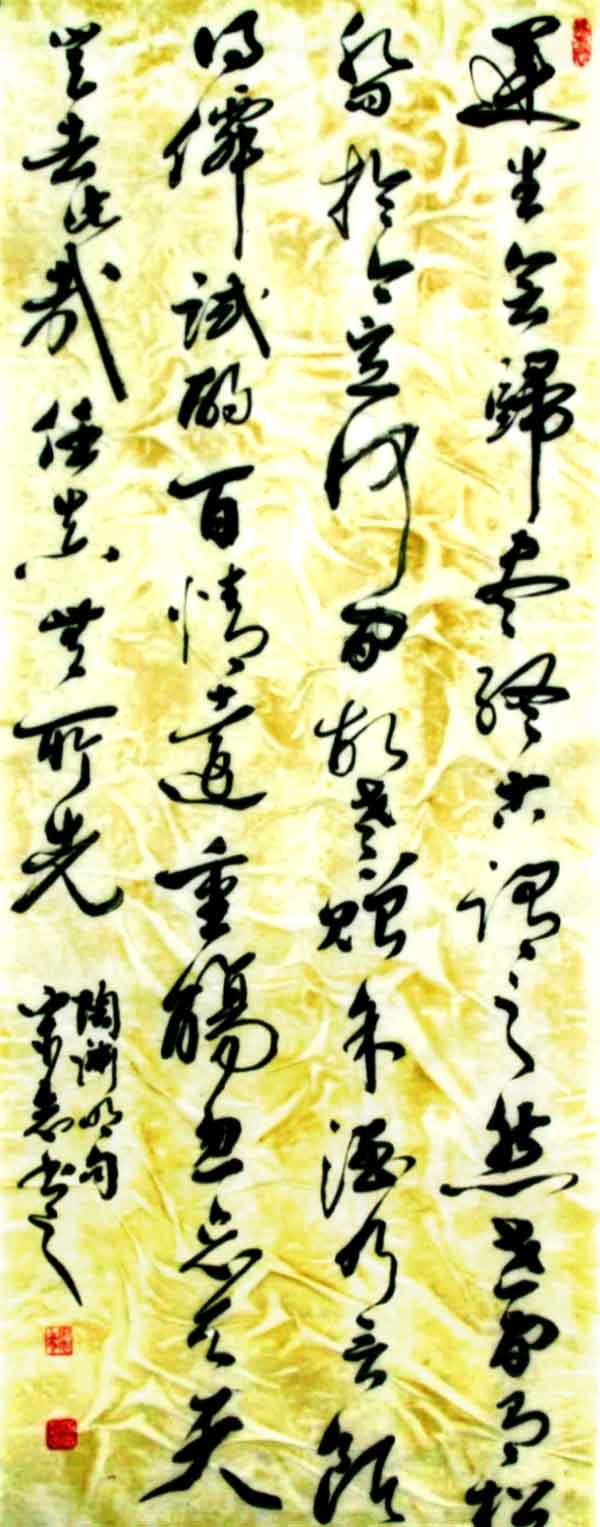 運生會歸盡終古謂之然世間有松
喬於今定何間故老贈余酒乃言飲
得僊試酌百情遠重觴忽忘天天
豈去此哉任真無所先
陶渊明句
書之